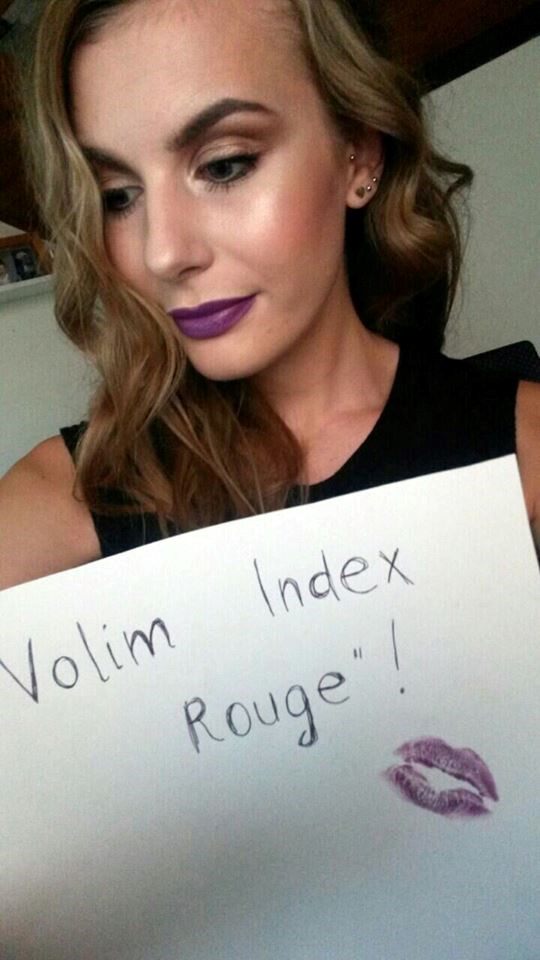 Volim Index
Rouge"!